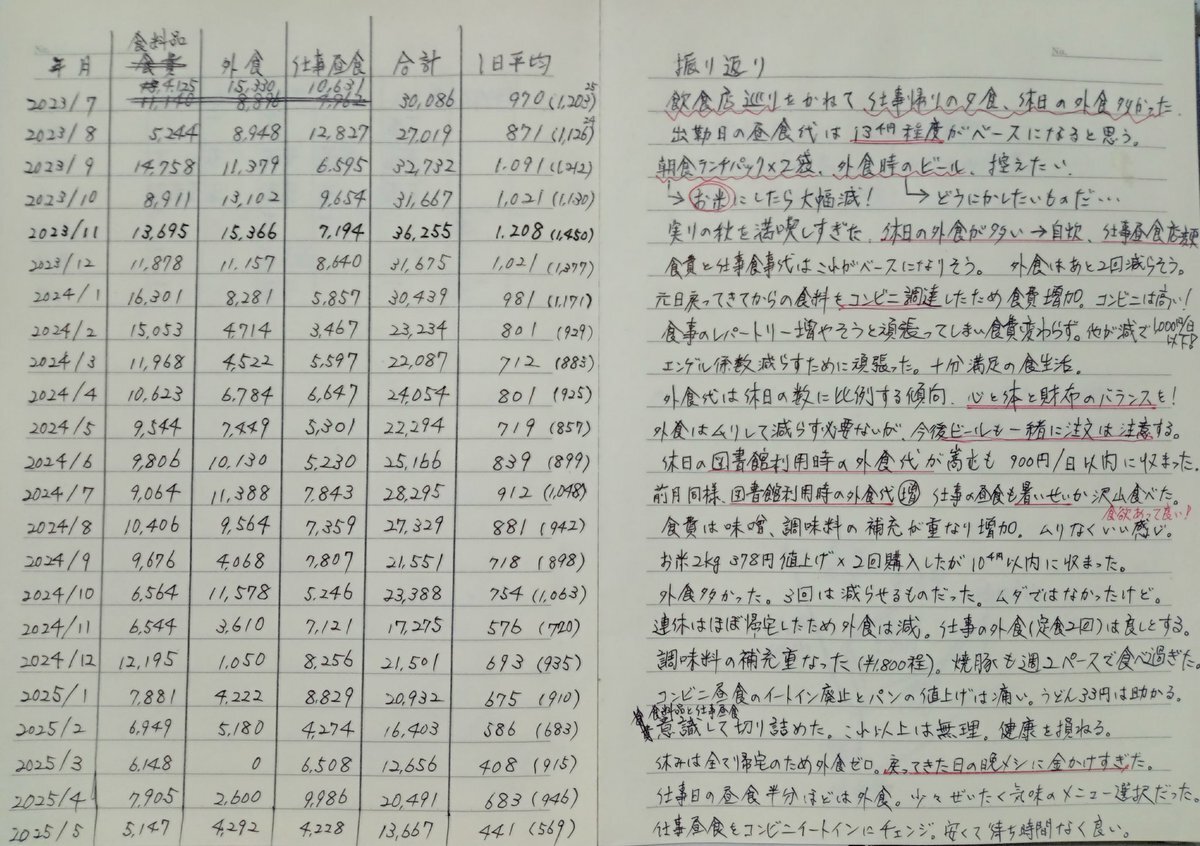 年月 食料品 食費 外食 仕事昼食 合計 1日平均
4,125 15,330 10,631
2023/7 11,140 8,896 9,962 30,086 970 (1,203) 25
2023/8 5,244 8,948 12,827 27,019 871 (1,126) 24
2023/9 14,758 11,379 6,595 32,732 1,091 (1,212)
2023/10 8,911 13,102 9,654 31,667 1,021 (1,130)
2023/11 13,695 15,366 7,194 36,255 1,208 (1,450)
2023/12 11,878 11,157 8,640 31,675 1,021 (1,377)
2024/1 16,301 8,281 5,857 30,439 981 (1,171)
2024/2 15,053 4,714 3,467 23,234 801 (929)
2024/3 11,968 4,522 5,597 22,087 712 (883)
2024/4 10,623 6,784 6,647 24,054 801 (925)
2024/5 9,544 7,449 5,301 22,294 719 (857)
2024/6 9,806 10,130 5,230 25,166 839 (899)
2024/7 9,064 11,388 7,843 28,295 912 (1,048)
2024/8 10,406 9,564 7,359 27,329 881 (942)
2024/9 9,676 4,068 7,807 21,551 718 (898)
2024/10 6,564 11,578 5,246 23,388 754 (1,063)
2024/11 6,544 3,610 7,121 17,275 576 (720)
2024/12 12,195 1,050 8,256 21,501 693 (935)
2025/1 7,881 4,222 8,829 20,932 675 (910)
2025/2 6,949 5,180 4,274 16,403 586 (683)
2025/3 6,148 0 6,508 12,656 408 (915)
2025/4 7,905 2,600 9,986 20,491 683 (946)
2025/5 5,147 4,292 4,228 13,667 441 (569)
No.
振り返り
飲食店巡りをかねて仕事帰りの夕食、休日の外食多かった.
出勤日の昼食代は13千円程度がベースになると思う。
朝食ランチパック×2袋、外食時のビール、控えたい.
→お米にしたら大幅減! →どうにかしたいものだ…
実りの秋を満喫しすぎた、休日の外食が多い→自炊、仕事昼食店変更
食費と仕事食事代はこれがベースになりそう。 外食はあと2回減らそう。
元日戻ってきてからの食料をコンビニ調達したため食費増加。コンビニは高い!
食事のレパートリー増やそうと頑張ってしまい食費変わらず。他が減で1,000円/日以下8
エンゲル係数減らすために頑張った。十分満足の食生活。
外食代は休日の数に比例する傾向、心と体と財布のバランスを!
外食はムリして減らす必要ないが、今後ビールも一緒に注文は注意する。
休日の図書館利用時の外食代が嵩むも900円/日以内に収まった。
前月同様、図書館利用時の外食代増 仕事の昼食も暑いせいか沢山食べた。
食欲あって良い!
食費は味噌、調味料の補充が重なり増加。ムリなくいい感じ。
お米2kg 378円値上げ×2回購入したが10千円以内に収まった。
外食多かった。3回は減らせるものだった。ムダではなかったけど。
連休はほぼ帰宅したため外食は減。仕事の外食(定食2回)は良しとする。
調味料の補充重なった(¥1,800程)。焼豚も週2ペースで食べ過ぎた。
コンビニ昼食のイートイン廃止とパンの値上げは痛い。うどん33円は助かる。
食料品と仕事昼食
意識して切り詰めた。これ以上は無理。健康を損ねる。
休みは全て帰宅のため外食ゼロ。戻ってきた日の晩メシに金かけすぎた。
仕事日の昼食半分ほどは外食。少々ぜいたく気味のメニュー選択だった。
仕事昼食をコンビニイートインにチェンジ。安くて待ち時間なく良い。